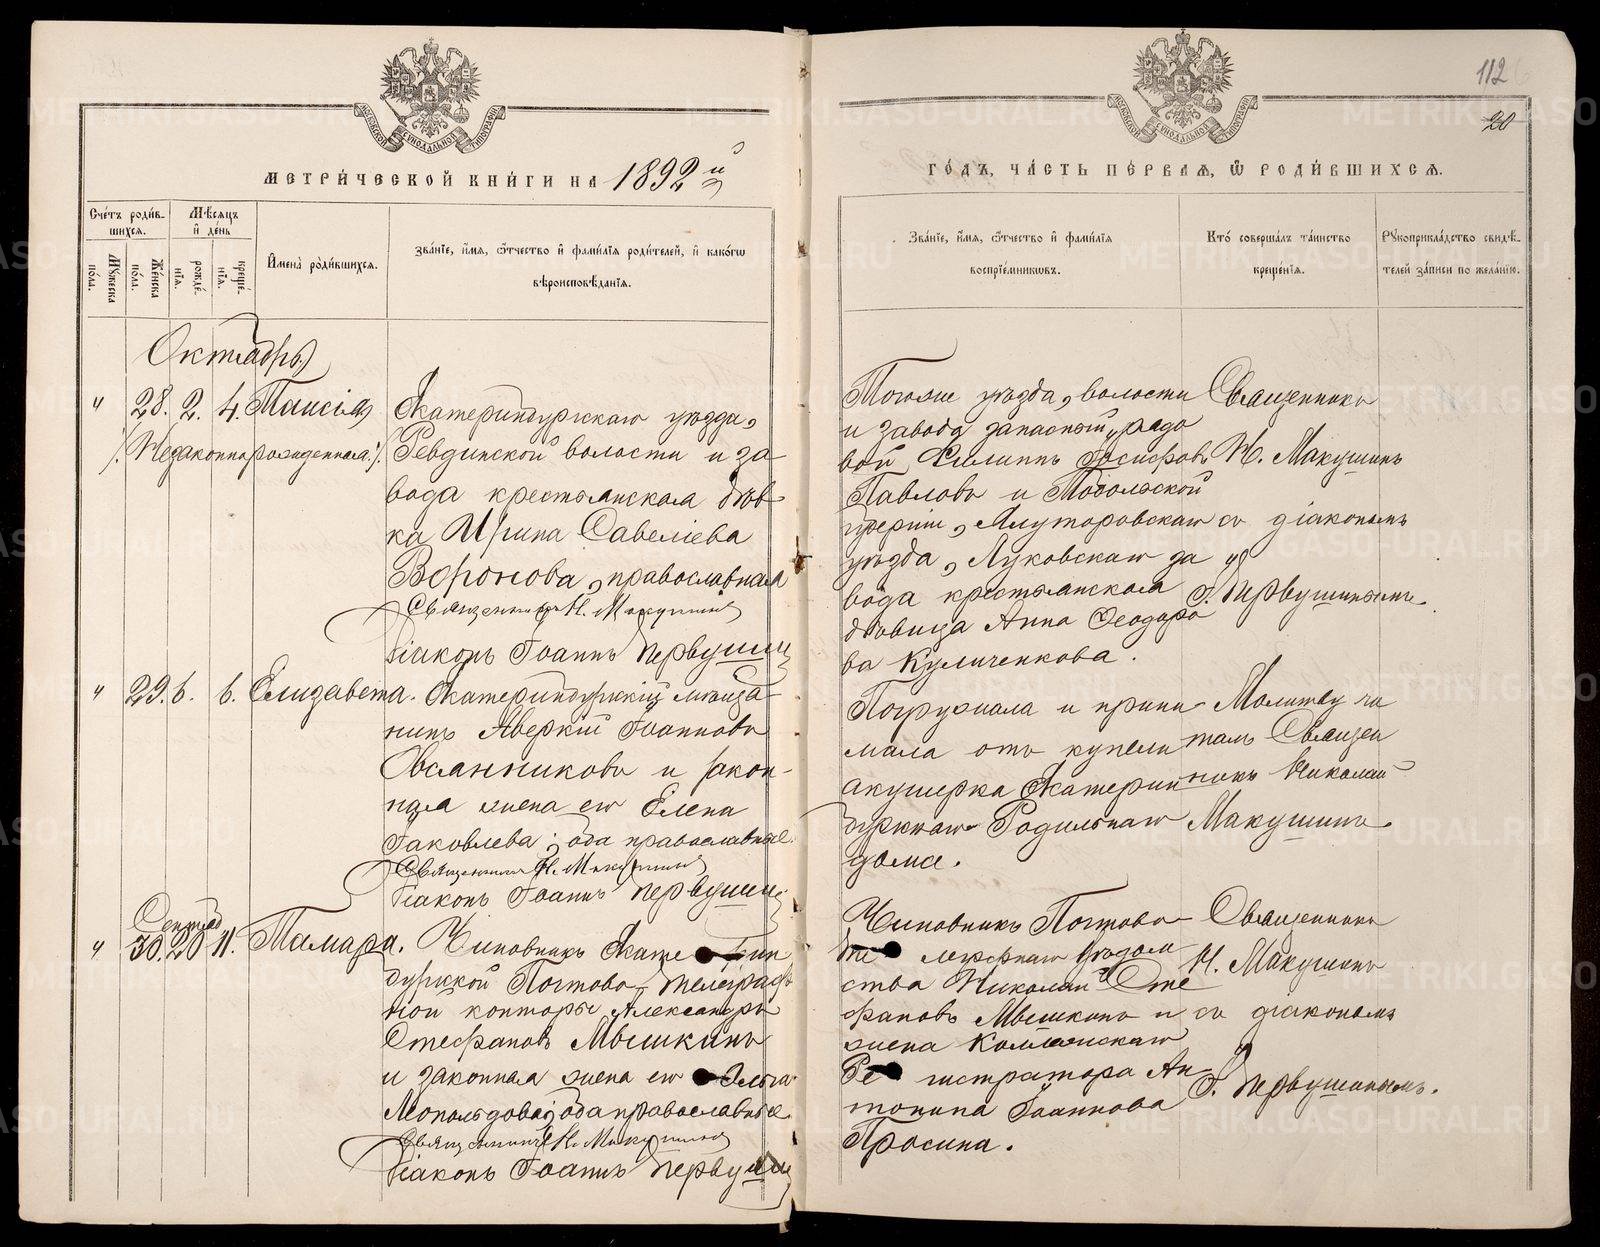 112
20
МОСКОВСКОЙ СѴНОДАЛЬНОЙ ТИПОГРАФІИ
МОСКОВСКОЙ СѴНОДАЛЬНОЙ ТИПОГРАФІИ
МЕТРИ́ЧЕСКОЙ КНИ́ГИ НА 1892 й
Сче́тъ роди́в-
шихся.
Мѣ́сяцъ
и҆ де́нь
Му́жеска
по́ла.
Же́нска
по́ла.
рожде́-
нїѧ.
креще́-
нїѧ.
И҆мена̀ роди́вшихся.
Зва́нїе, и҆́мя, ѻ҆́тчество и҆ фами́лїя роди́телей, и҆ како́гѡ
вѣроисповѣ́данїя.
Октябрь
" 28. 2. 4. Таисія
(Незаконнорожденная.)
Екатеринбургскаго уѣзда,
Ревдинской волости и за
вода крестьянская дѣв
ка Ирина Савеліева
Воронова, православная
Священникъ Н. Макушинъ
Діаконъ Іоаннъ Первушин
" 29. 6. 6. Елизавета.
Екатеринбургскій мѣща
нинъ Аверкій Іоанновъ
Овсянниковъ и закон-
ная жена его Елена
Іаковлева; оба православные.
Священникъ Н. Макушинъ
Діаконъ Іоаннъ Первушин
Сентяб
" 30. 20 11. Тамара.
Чиновникъ Екате рин
бургской Почтово-телеграф
ной конторы Александръ
Стефановъ Мышкинъ
и законная жена его Ольга
Леопольдова; оба православные
Священникъ Н. Макушинъ
Діаконъ Іоаннъ Первушин
ГО́ДЪ, ЧА́СТЬ ПЕ́РВАЯ, Ѽ РОДИ́ВШИХСЯ.
Зва́нїе, и҆́мя, ѻ҆́тчество и҆ фами́лїя
воспрїе́мниковъ.
Кто̀ соверша́лъ та́инство
креще́нїя.
Рꙋкоприкла́дство свидѣ́-
телей за́писи по жела́нїю.
Тогоже уѣзда, волости
и завода запасный рядо
вой Филиппъ Іосифовъ
Павловъ и Тобольской
губерніи, Ялуторовскаго
уѣзда, Луковскаго за
вода крестьянская
дѣвица Анна Феодоро
ва Куличенкова.
Священникъ
Н. Макушинъ
со діакономъ
І. Первушинымъ.
Погружала и прини-
мала отъ купели
акушерка Екатерин
бургскаго Родильнаго
дома.
Молитву чи
талъ Священ
никъ Николай
Макушинъ.
Чиновникъ Почтово-
те леграфнаго Вѣдом
ства Николай Сте
фановъ Мышкинъ и
жена Коллежскаго
Ре гистратора Ан-
тонина Іоаннова
Просина.
Священникъ
Н. Макушинъ
со діакономъ
І. Первушинымъ.
METRIKI.GASO-URAL.RU